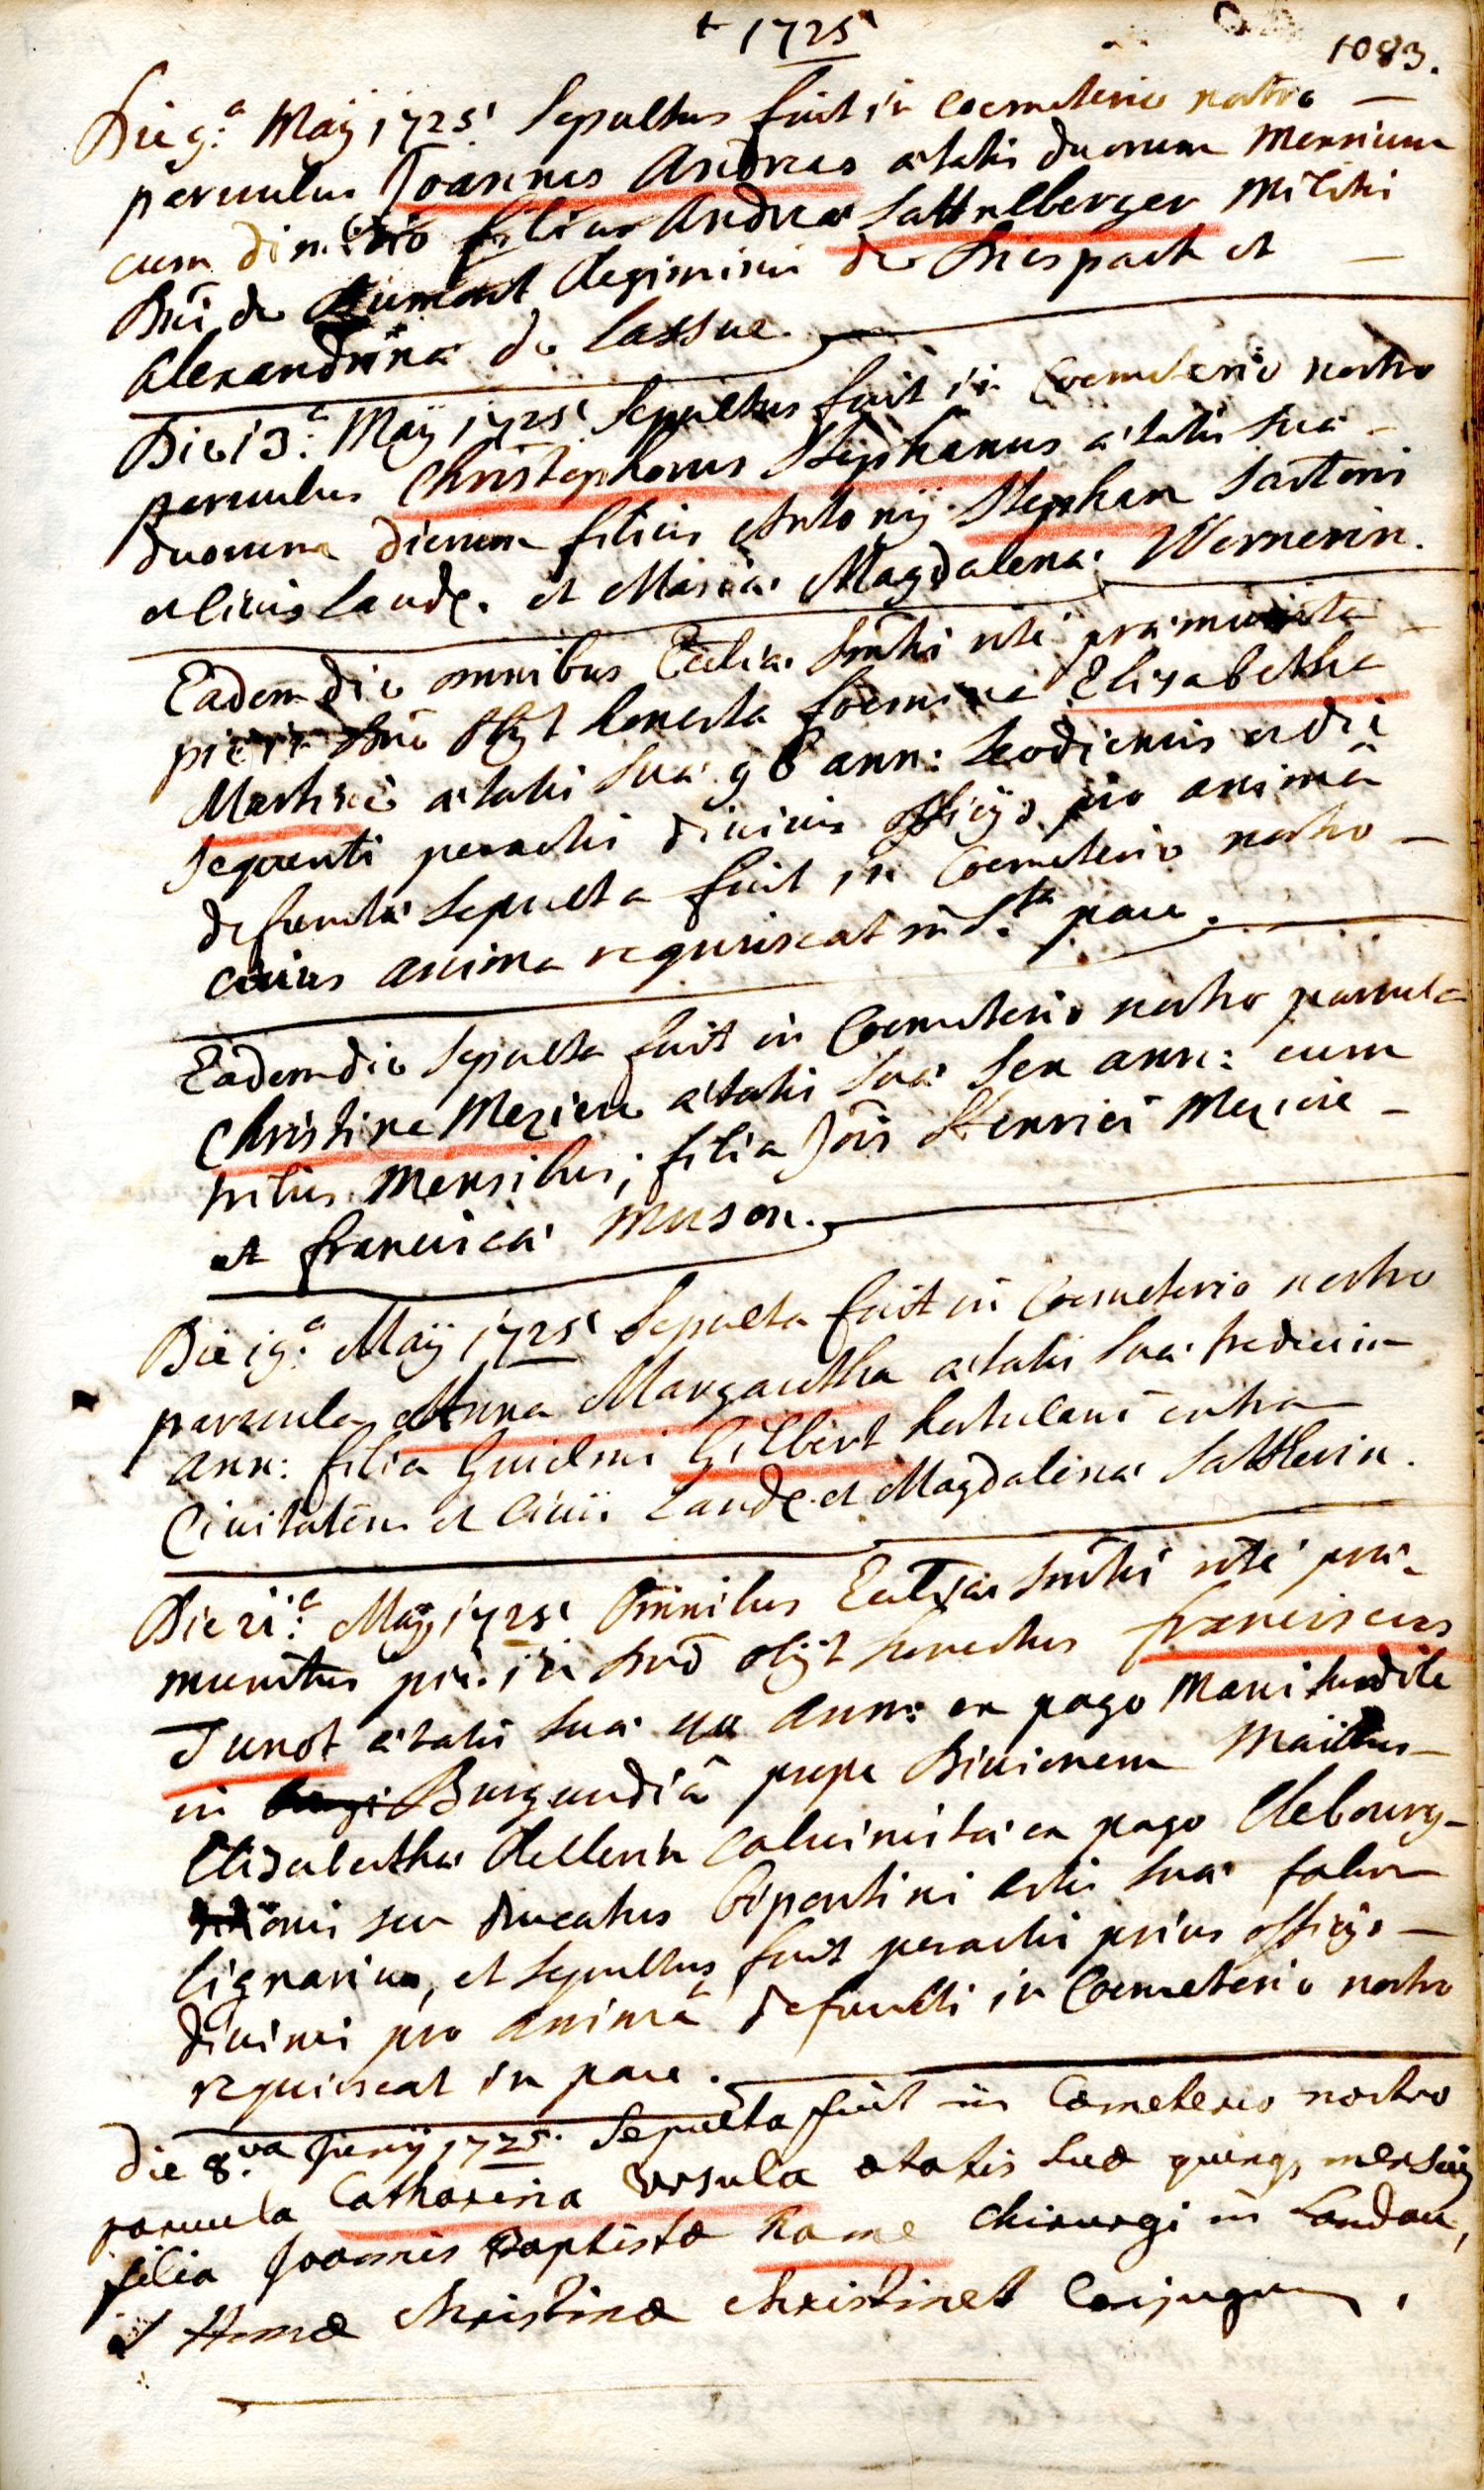 † 1725
1083.
Die 9.a Maÿ 1725 Sepultus fuit in coemeterio nostro
parvulus Joannes Andreas ætatis duorum Mensium
cum dimidio filius Andreæ Sattelberger Militis
Dni de Aumont Regiminis de Diespach et
Alexandrina de Lassue.
Die 13.a Maÿ 1725 Sepultus fuit in Coemeterio nostro
parvulus Christophorus Stephanus ætatis suæ
duorum dierum filius Antonÿ Stephan Sartoris
et civis Laude. et Mariæ Magdalenæ Wernerin.
Eadem die omnibus Eccliæ Smtis rite præmunita
pie in Dnō obÿt honesta foemina Elisabetha
Martini ætatis suæ 98 ann: Leodiensis et die
sequenti peractis divinis officÿs pro animâ
defunctæ Sepulta fuit in Coemeterio nostro
cuius anima requiescat in S.ta pace.
Eadem die Sepulta fuit in Coemeterio nostro parvula
Christina Meziere ætatis suæ sex ann: cum
tribus Mensibus; filia Jōis Henrici Meziere
et franciscæ Muson.
Die 19.a Maÿ 1725 Sepulta fuit in Coemeterio nostro
parvula Anna Margaretha ætatis suæ tredecim
ann: filia Guielmi Gilbert hortulani extra
Civitatem et civis Laude. et Magdalenæ Sattlerin.
Die 21.a Maÿ 1725 Omnibus Eccliæ Smtis rite præ-
munitus pie in Dnō obÿt honestus franciscus
Junot ætatis suæ ann: ex pago
in Burgundiâ prope Divionem Maritus
Elisabethæ Kellerin Calvinistæ ex pago Clebourg
seu Ducatus Bipontini artis suæ faber
lignarius, et sepultus fuit peractis prius officÿs
divinis pro animâ defuncti in Coemeterio nostro
requiescat in pace.
Die 8.va Junÿ 1725. Sepulta fuit in Cœmeterio nostro
parvula Catharina Ursula ætatis suæ quinq; mensium
filia Joannis Baptistæ Rame Chirurgi in Landau,
et Annæ Christinæ Christinet Conjugum.